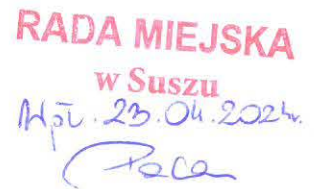 RADA MIEJSKA
w Suszu
Wpł. 23.04.2024r.